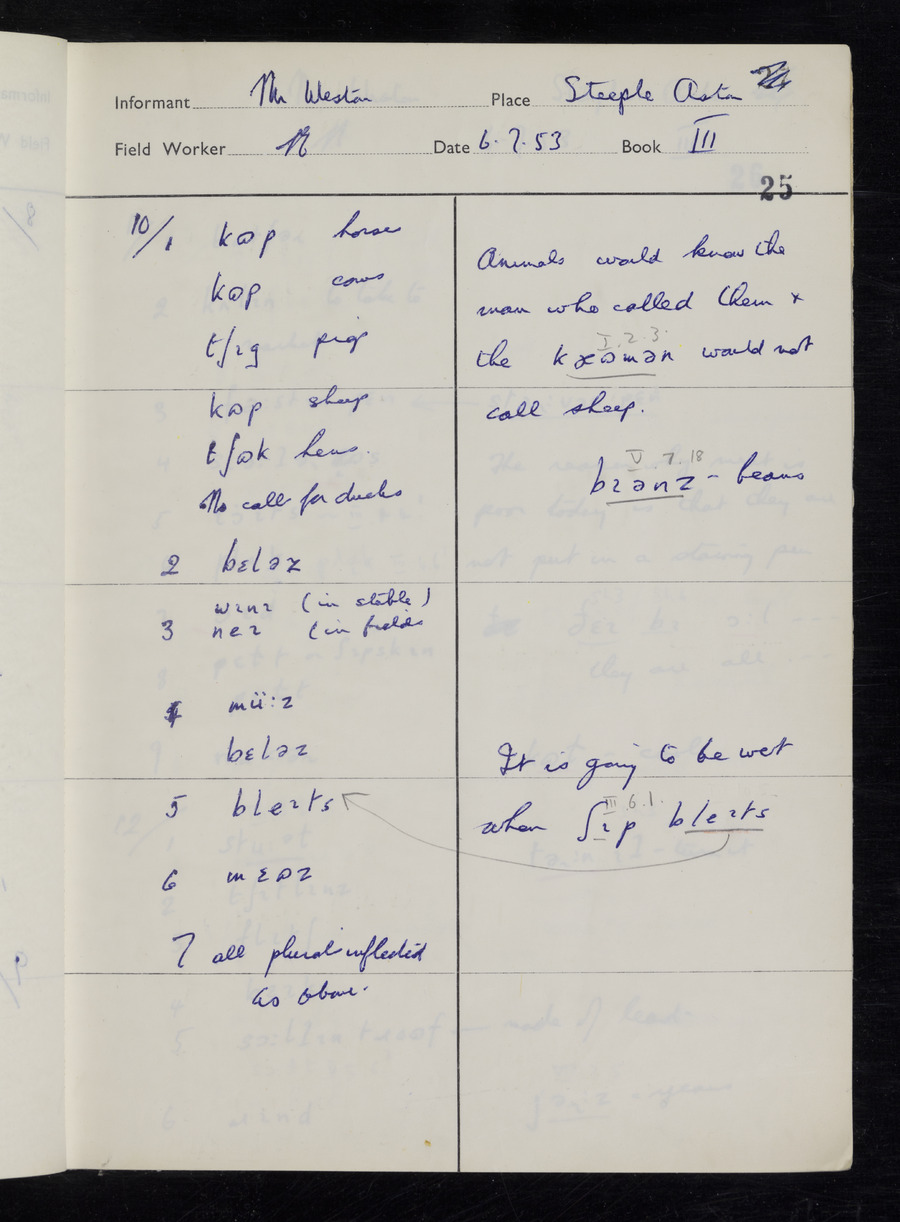 Informant Mr Weston Place Steeple Aston
Field Worker Date 6.7.53 Book III
25
10/1 kɒp horses
kɒp cows
tʃɪg pigs
kɒp sheep
tʃɒk hens.
No call for ducks
2 bɛləz
wɪnɪ (in stable)
3 neɪ (in fields
4 müːz
bɛləz
5 bleɪts
6 mɛɒz
7 all plural inflected
as above.
Animals would know the
man who called them +
I.2.3.
the kæɒmən would not
call sheep.
V.7.18
bɪənz - beans
It is going to be wet
III.6.1.
when ʃɪp bleɪts